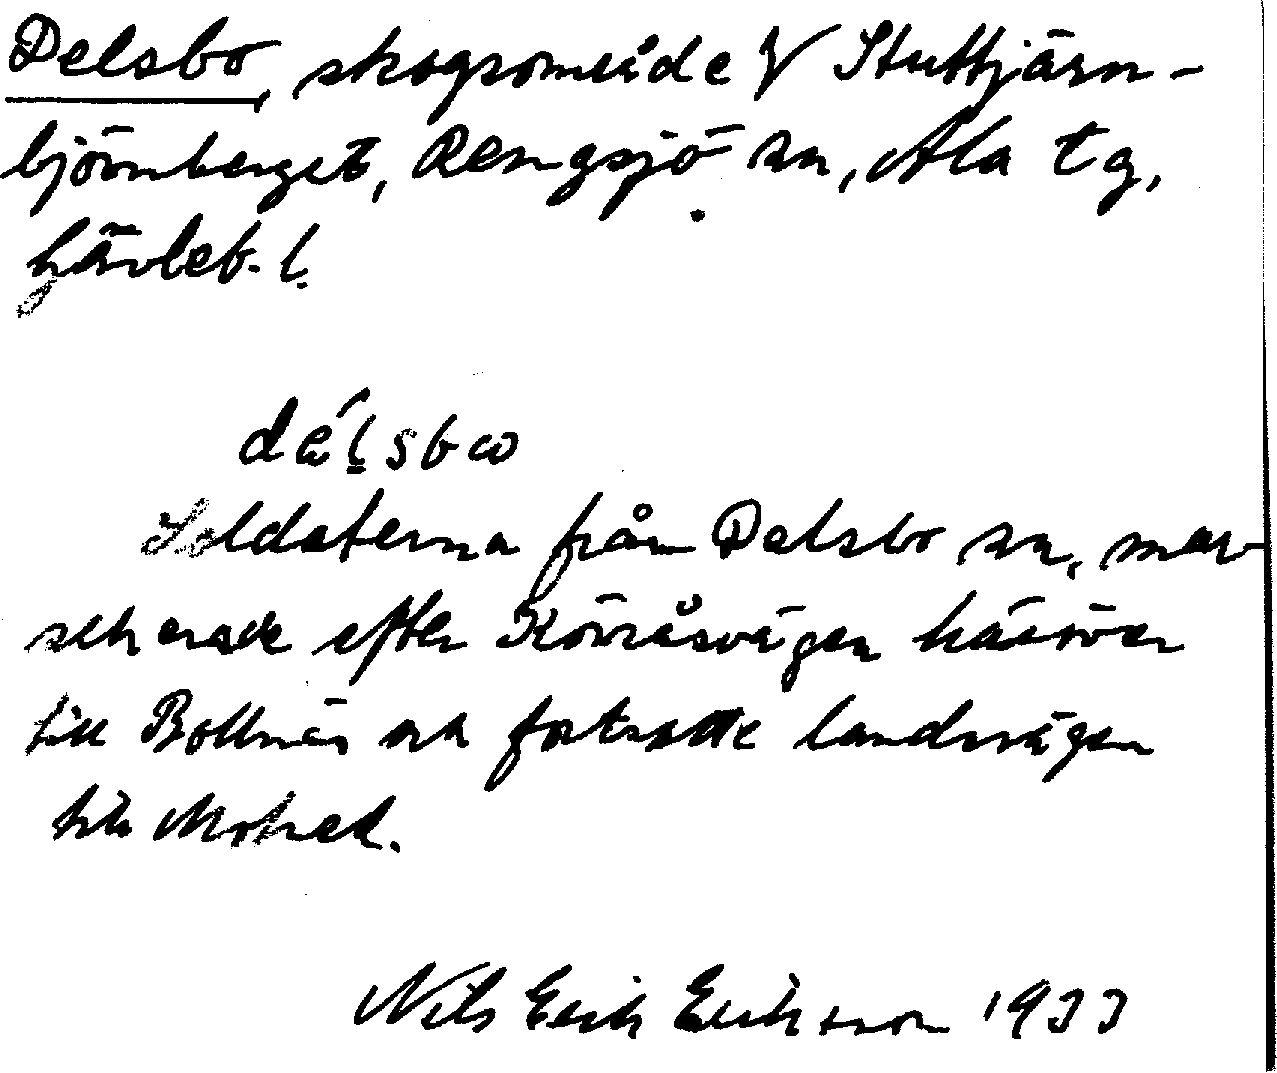 Delsbo, skogsområde V Stuttjärn-
björnberget, Rengsjö sn, Ala tg,
Gävleb. l.
délsbω
Soldaterna från Delsbo sn, mar-
scherade efter Kövråsvägen häröver
till Bollnäs och fortsatte landsvägen
till Mohed.
Nils Erik Eriksson 1933